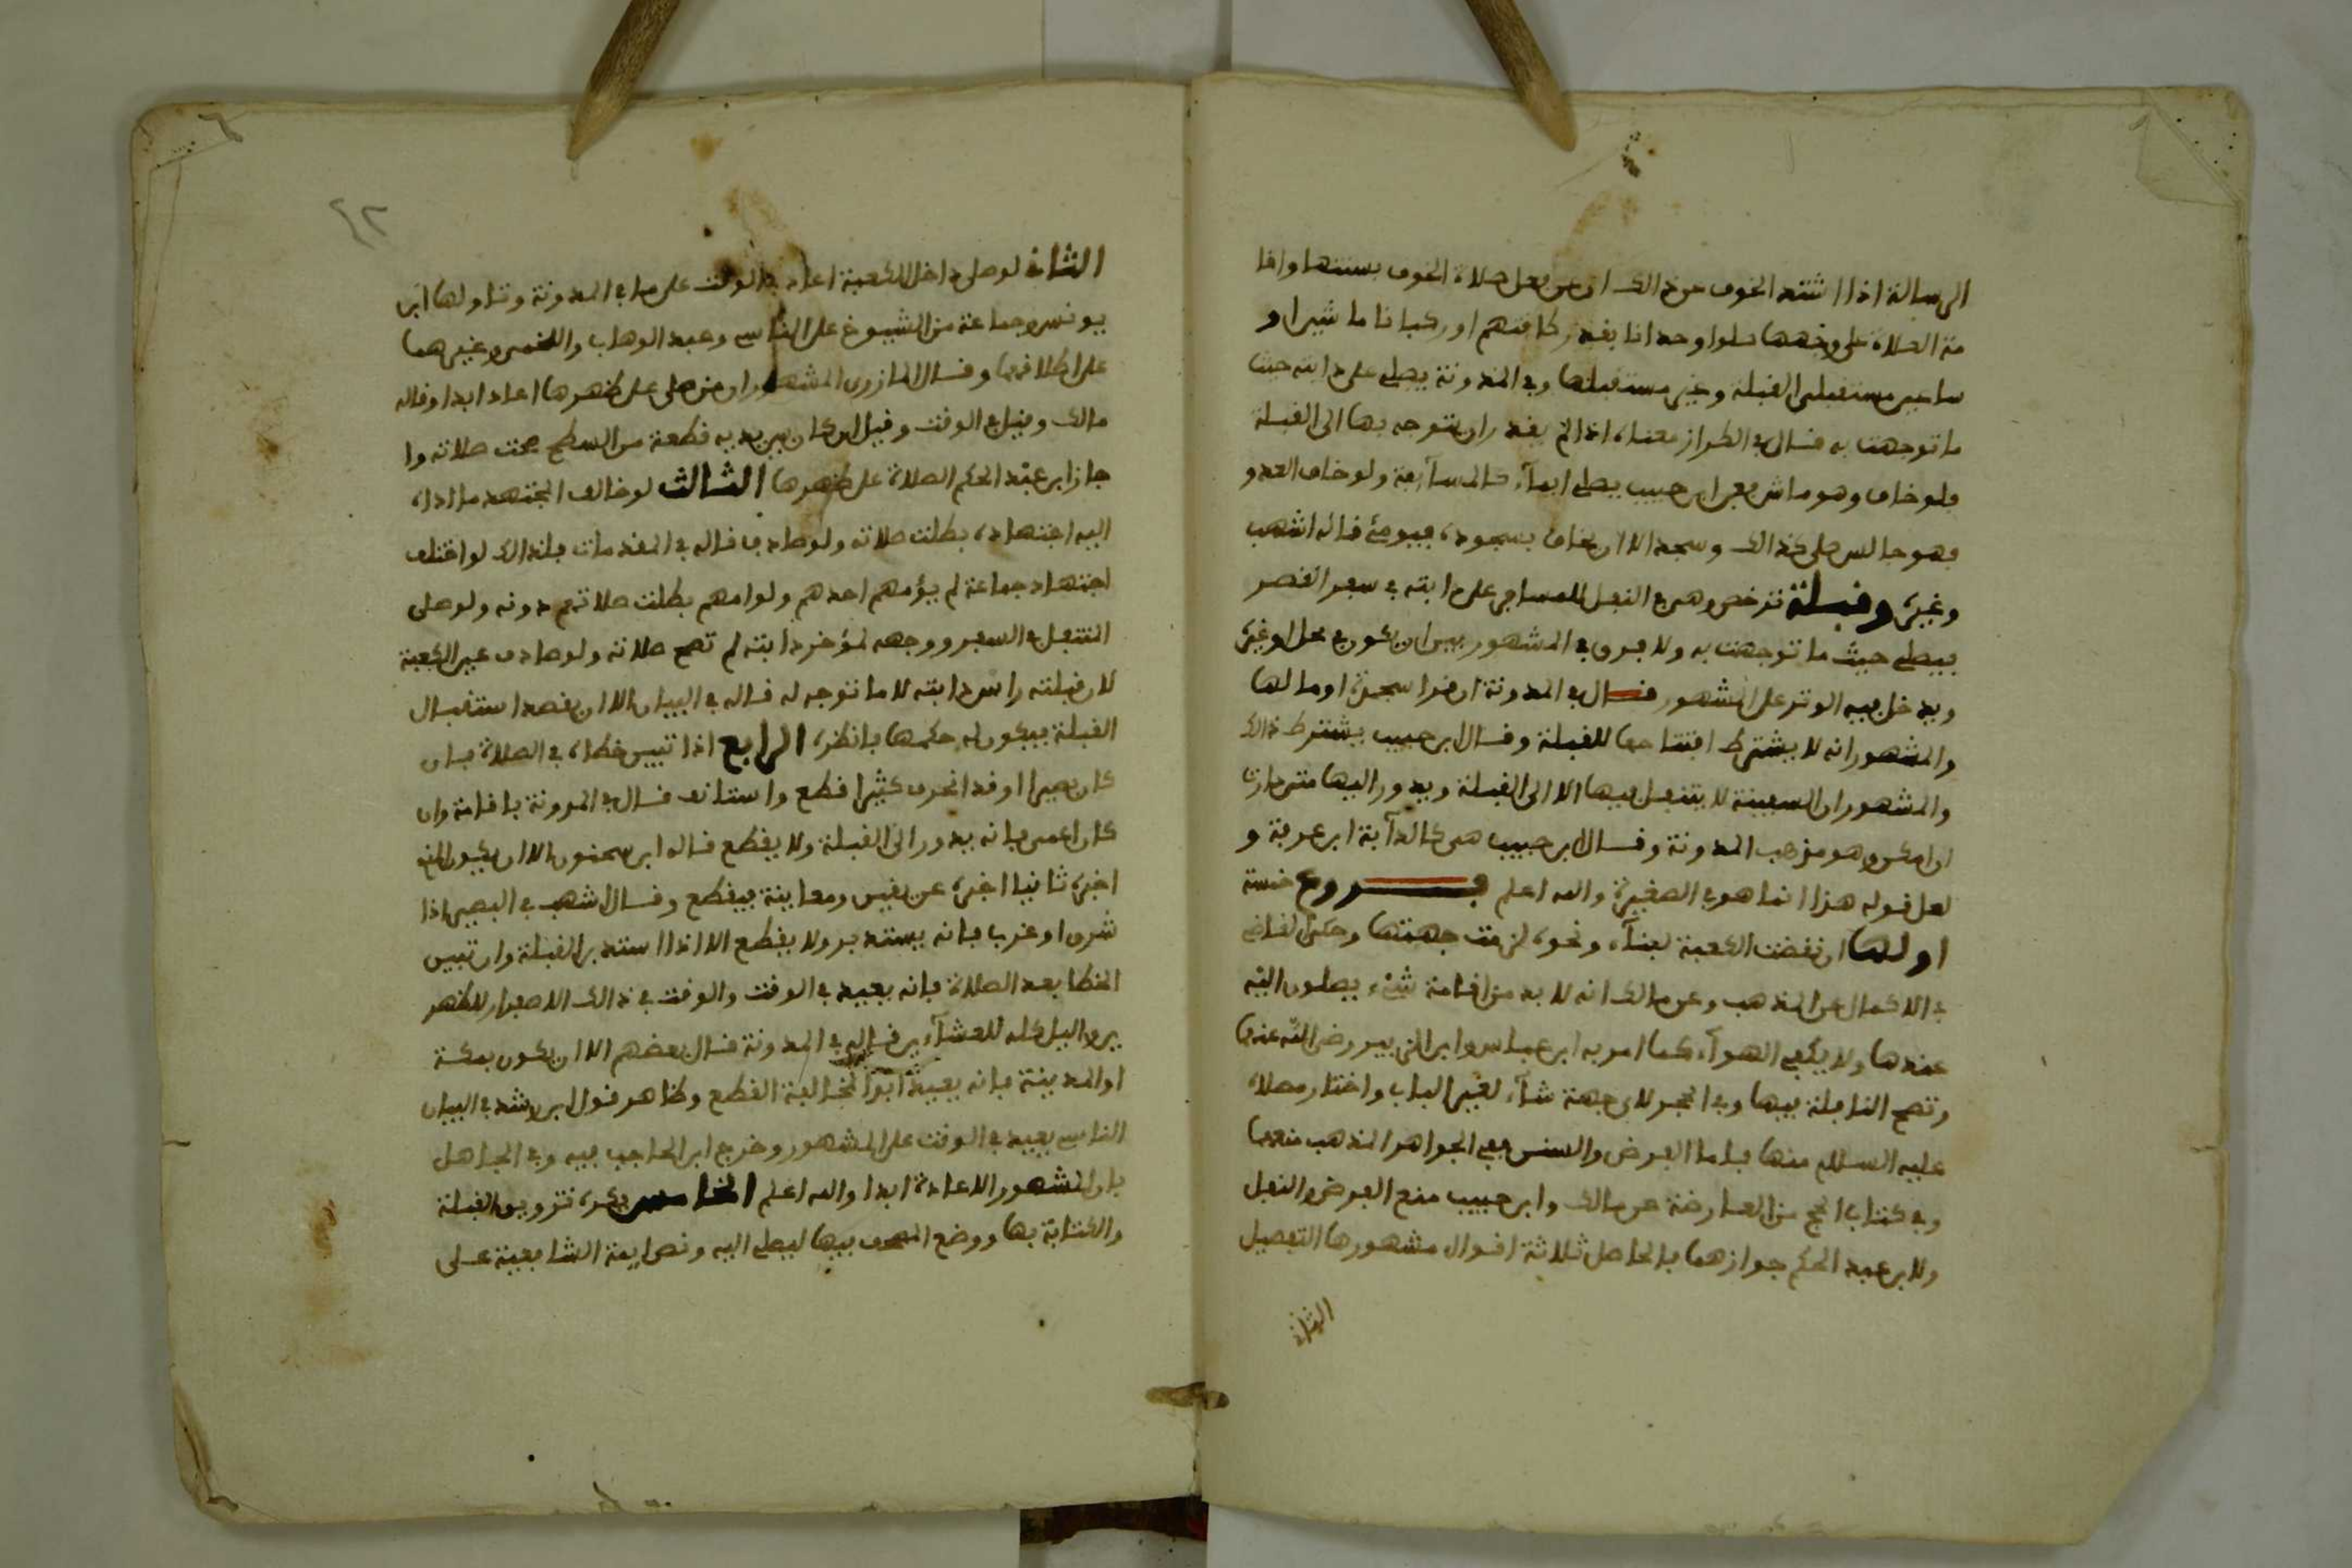 الرسالة اذا اشتد الخوف عن ذالك اي عن فعل صلاة الخوف بسنتها واقا
مة الصلاة على وجهها صلوا وحدانا بقدر طاقتهم او ركبانا ما شيرا و
ساعين مستقبلي القبلة وغير مستقبلها وفي المدونة يصلي على دابته حيث
ما توجهت به قال في الطراز معناه اذا لم يقدر ان يتوجه بها الى القبلة
ولو خاف وهو ماش فعن ابن حبيب يصلي ايماء كالمسايفة ولو خاف العدو
وهو جالس صلى كذالك وسجد الا ان يخاف بسجوده فيومئ قاله اشهب
وغيره وقبلة ترخص وهي في النفل للمسافر على دابته في سفر القصر
فيصلي حيث ما توجهت به ولا فرق في المشهور بين ان يكون في محل او غيره
ويدخل فيه الوتر على المشهور قال في المدونة ان قرا سجدة اومأ لها
والمشهور انه لا يشترط افتتاحها للقبلة وقال ابن حبيب يشترط ذالك
والمشهور ان السفينة لا يتنفل فيها الا الى القبلة ويدور اليها متى دارت
ان امكن وهو مذهب المدونة وقال ابن حبيب هي كالدآبة ابن عرفة و
لعل قوله هذا انما هو في الصغيرة والله اعلم فروع خمسة
اولها ان نقضت الكعبة لبناء ونحوه لزمت جهتها وحكى القاضي
في الاكمال عن المذهب وعن مالك انه لا بد من اقامة شيء يصلون اليه
عندها ولا يكفي الهوآء كما امر به ابن عباس وابن الزبير رضي الله عنهما
وتصح النافلة فيها وفي الحجر لاي جهة شآء لغير الباب واختار مصلاه
عليه السلام منها فاما الفرض والسنن ففي الجواهر المذهب منعهما
وفي كتاب الحج من العارضة عن مالك وابن حبيب منع الفرض والنفل
ولابن عبد الحكم جوازهما فالحاصل ثلاثة اقوال مشهورها التفصيل
الثاني
٤٢
الثاني لو صلى داخل الكعبة اعاد في الوقت على ما في المدونة وتاولها ابن
يونس وجماعة من الشيوخ على الناسي وعبد الوهاب واللخمي وغيرهما
على اطلاقها وقال المازري المشهور ان من صلى على ظهرها اعاد ابدا وقاله
مالك وقيل في الوقت وقيل ان كان بين يديه قطعة من السطح صحت صلاته وا
جاز ابن عبد الحكم الصلاة على ظهرها الثالث لو خالف المجتهد ما اداه
اليه اجتهاده بطلت صلاته ولو صادف قاله في المقدمات فلذالك لو اختلف
اجتهاد جماعة لم يؤمهم احدهم ولو امهم بطلت صلاتهم دونه ولو صلى
المتنفل في السفر ووجهه لمؤخر دابته لم تصح صلاته ولو صادف عين الكعبة
لان قبلته راس دابته لا ما تتوجه له قاله في البيان الا ان يقصد استقبال
القبلة فيكون له حكمها فانظره الرابع اذا تبين خطاه في الصلاة فان
كان بصيرا وقد انحرف كثيرا قطع واستانف قال في المدونة باقامة وان
كان اعمى فانه يدور الى القبلة ولا يقطع قاله ابن سحنون الا ان يكون الذي
اخبره ثانيا اخبره عن يقين ومعاينة فيقطع وقال اشهب في البصير اذا
شرق او غرب فانه يستدير ولا يقطع الا اذا استدبر القبلة وان تبين
الخطا بعد الصلاة فانه يعيد في الوقت والوقت في ذالك الاصفرار للظهر
ين والليل كله للعشآءين قاله في المدونة قال بعضهم الا ان يكون بمكة
او المدينة فانه يعيد ابدا لمخالفة القطع وظاهر قول ابن رشد في البيان
الناسي يعيد في الوقت على المشهور وخرج ابن الحاجب فيه وفي الجاهل
بان المشهور الاعادة ابدا والله اعلم الخامس يكره تزويق القبلة
والكتابة بها ووضع المصحف فيها ليصلي اليه ونص ايمة الشافعية على